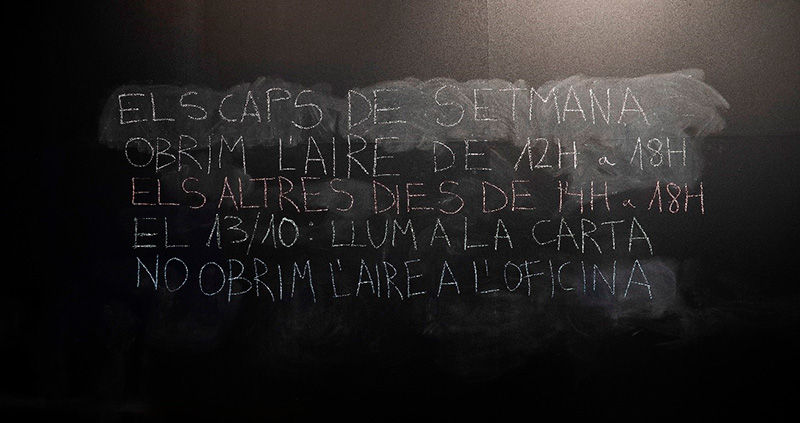 ELS CAPS DE SETMANA
OBRIM L'AIRE DE 12H a 18H
ELS ALTRES DIES DE 14H a 18H
EL 13/10: LLUM A LA CARTA
NO OBRIM L'AIRE A L'OFICINA